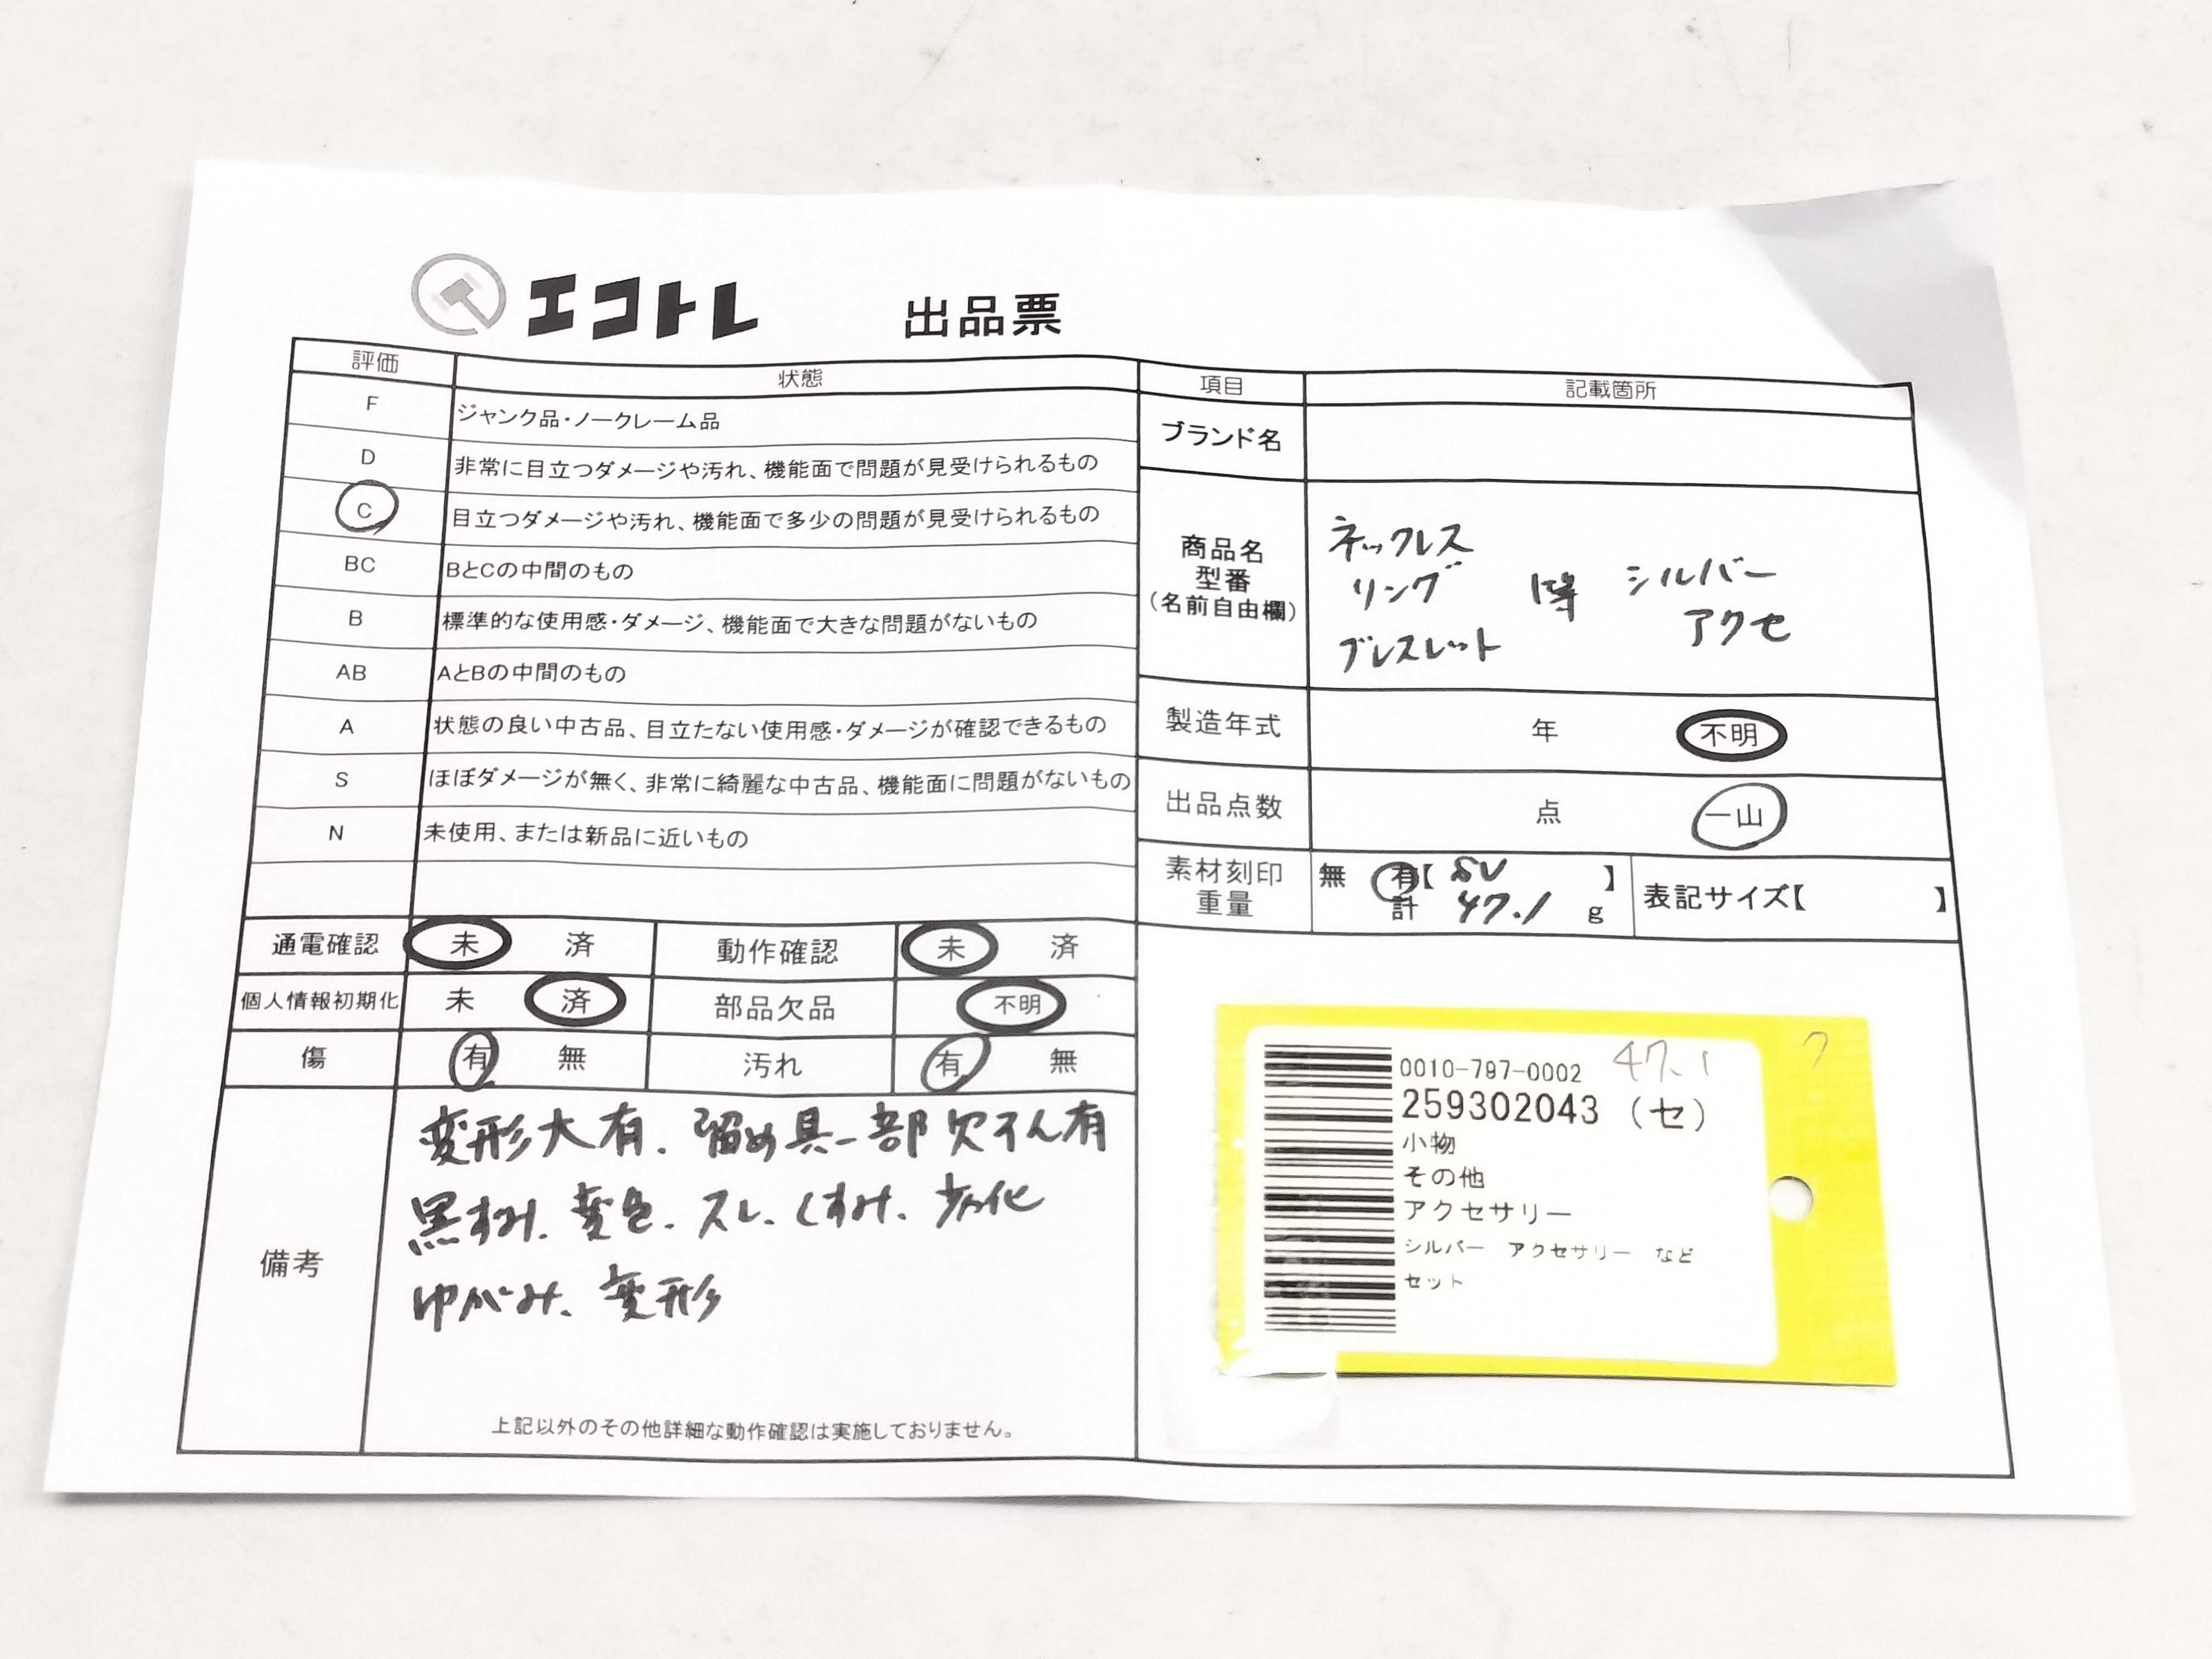 エコトレ 出品票
評価 状態
F ジャンク品・ノークレーム品
D 非常に目立つダメージや汚れ、機能面で問題が見受けられるもの
C 目立つダメージや汚れ、機能面で多少の問題が見受けられるもの
BC BとCの中間のもの
B 標準的な使用感・ダメージ、機能面で大きな問題がないもの
AB AとBの中間のもの
A 状態の良い中古品、目立たない使用感・ダメージが確認できるもの
S ほぼダメージが無く、非常に綺麗な中古品、機能面に問題がないもの
N 未使用、または新品に近いもの
通電確認 未 済 動作確認 未 済
個人情報初期化 未 済 部品欠品 不明
傷 有 無 汚れ 有 無
備考
変形大有、留め具一部欠そん有
黒ずみ、変色、スレ、くすみ、劣化
ゆがみ、変形
上記以外のその他詳細な動作確認は実施しておりません。
項目 記載箇所
ブランド名
商品名
型番
(名前自由欄)
ネックレス
リング 等 シルバー
ブレスレット アクセ
製造年式 年 不明
出品点数 点 一山
素材刻印 無 有【 SV 】 表記サイズ【 】
重量 計 47.1 g
0010-797-0002 47.1 7
259302043 (セ)
小物
その他
アクセサリー
シルバー アクセサリー など
セット